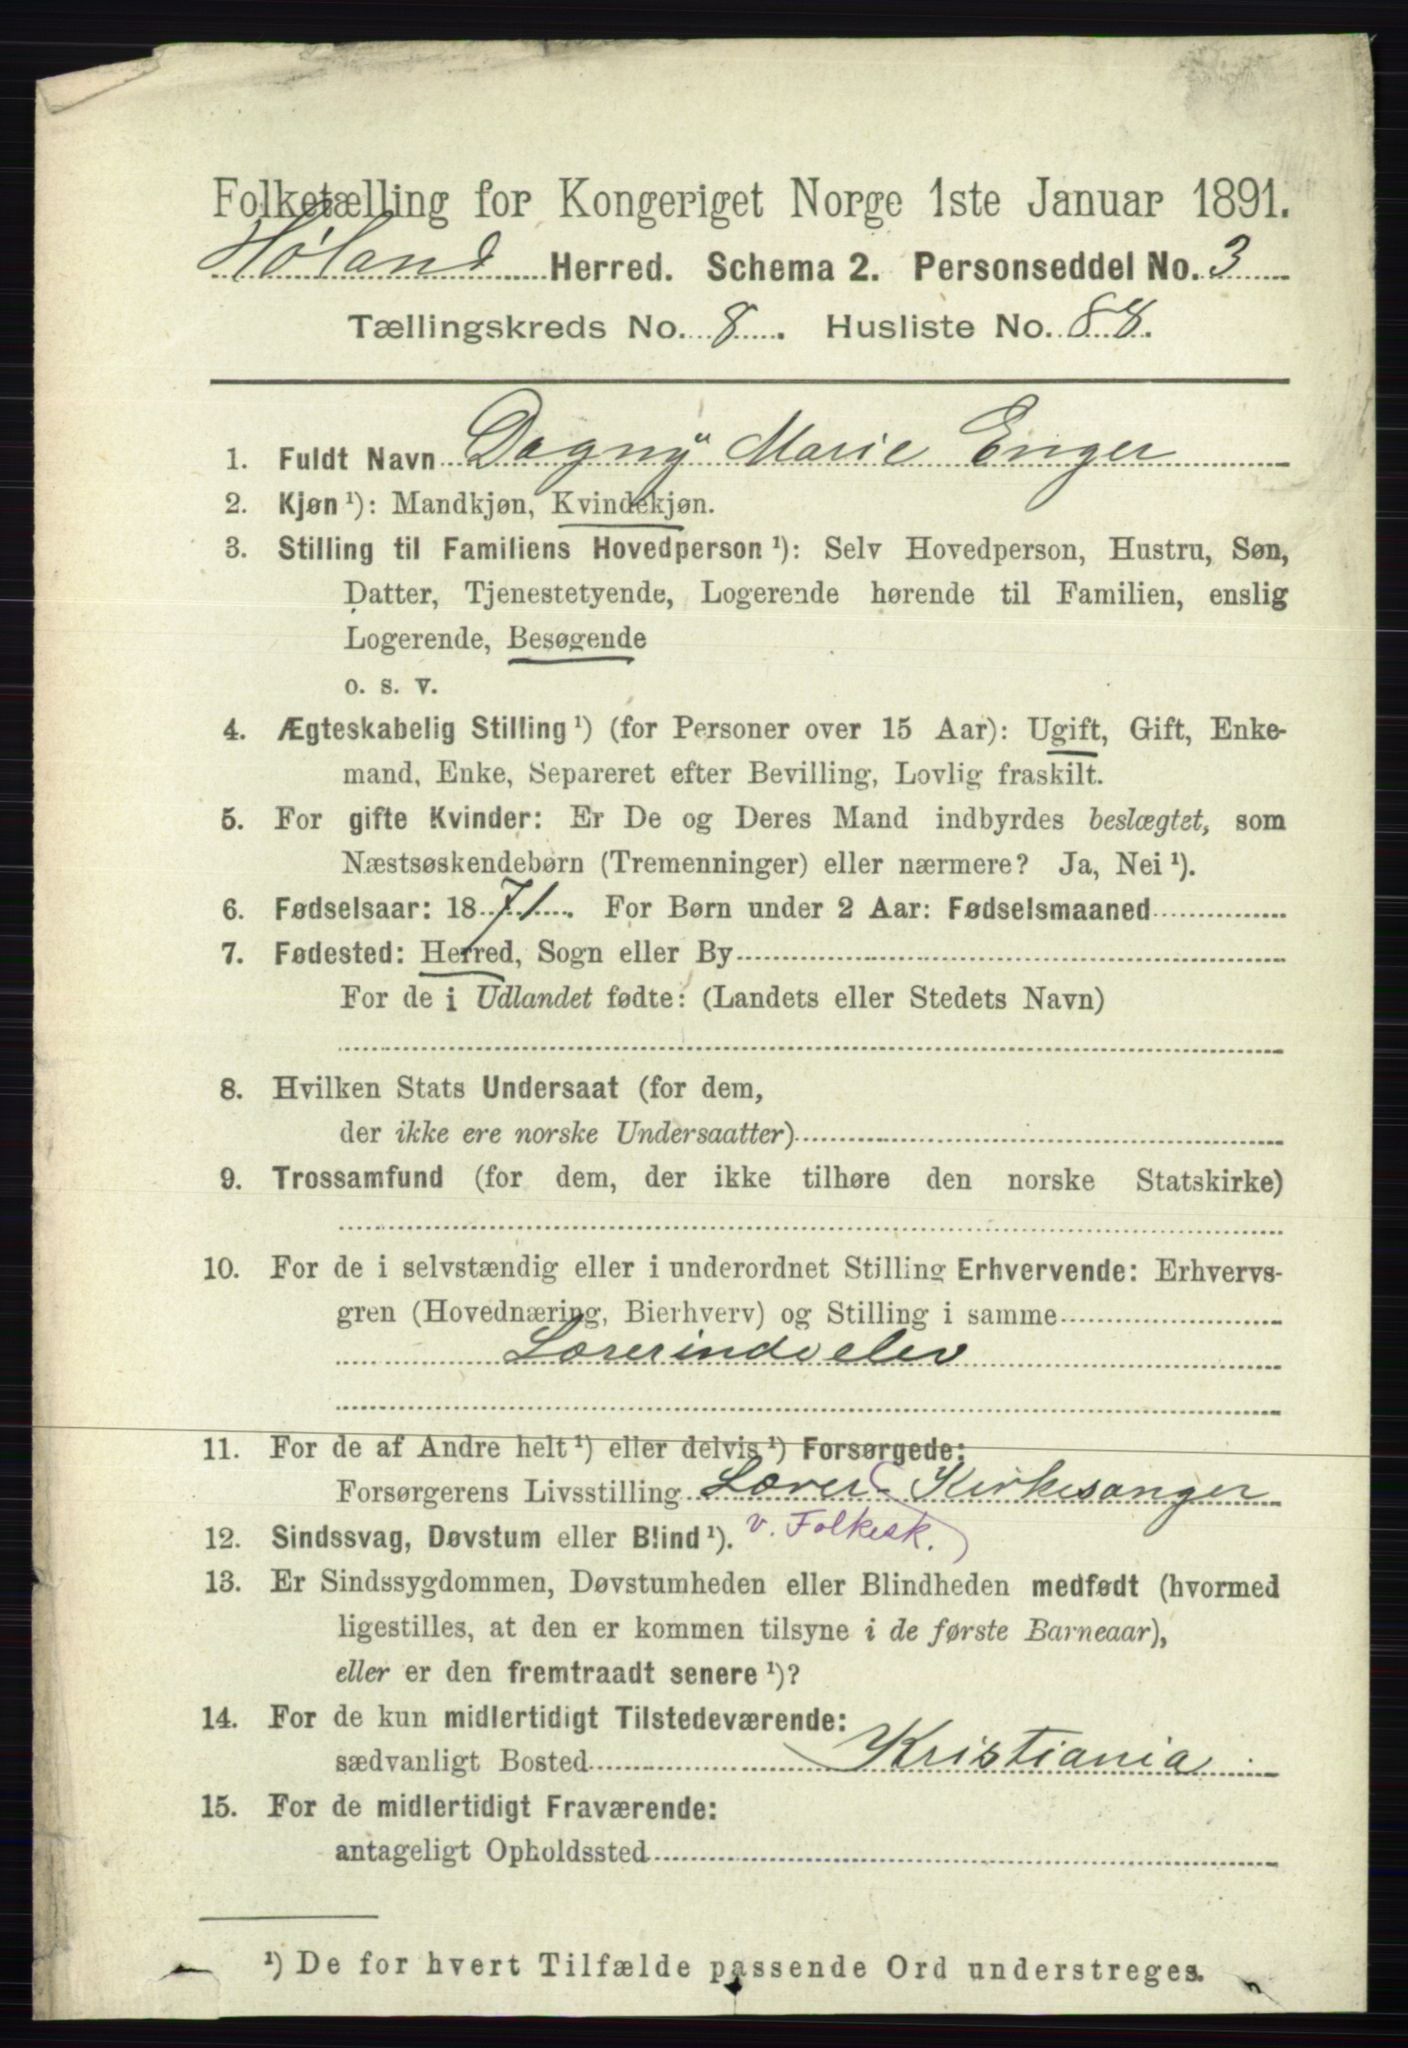 Folketælling for Kongeriget Norge 1ste Januar 1891.
Høland Herred. Schema 2. Personseddel No. 3
Tællingskreds No. 8. Husliste No. 88.
1. Fuldt Navn Dagny Marie Enger
2. Kjøn ¹): Mandkjøn, Kvindekjøn.
3. Stilling til Familiens Hovedperson ¹): Selv Hovedperson, Hustru, Søn,
Datter, Tjenestetyende, Logerende hørende til Familien, enslig
Logerende, Besøgende
o. s. v.
4. Ægteskabelig Stilling ¹) (for Personer over 15 Aar): Ugift, Gift, Enke-
mand, Enke, Separeret efter Bevilling, Lovlig fraskilt.
5. For gifte Kvinder: Er De og Deres Mand indbyrdes beslægtet, som
Næstsøskendebørn (Tremenninger) eller nærmere? Ja, Nei ¹).
6. Fødselsaar: 1871. For Børn under 2 Aar: Fødselsmaaned
7. Fødested: Herred, Sogn eller By
For de i Udlandet fødte: (Landets eller Stedets Navn)
8. Hvilken Stats Undersaat (for dem,
der ikke ere norske Undersaatter)
9. Trossamfund (for dem, der ikke tilhøre den norske Statskirke)
10. For de i selvstændig eller i underordnet Stilling Erhvervende: Erhvervs-
gren (Hovednæring, Bierhverv) og Stilling i samme
Lærerindeelev
11. For de af Andre helt ¹) eller delvis ¹) Forsørgede:
Forsørgerens Livsstilling Lærer - Kirkesanger
v. Folkesk.
12. Sindssvag, Døvstum eller Blind ¹).
13. Er Sindssygdommen, Døvstumheden eller Blindheden medfødt (hvormed
ligestilles, at den er kommen tilsyne i de første Barneaar),
eller er den fremtraadt senere ¹)?
14. For de kun midlertidigt Tilstedeværende:
sædvanligt Bosted Kristiania
15. For de midlertidigt Fraværende:
antageligt Opholdssted
¹) De for hvert Tilfælde passende Ord understreges.